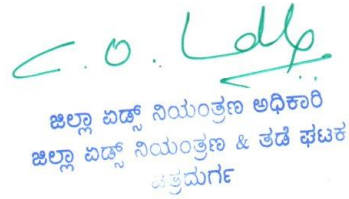 ಜಿಲ್ಲಾ ಏಡ್ಸ್ ನಿಯಂತ್ರಣ ಅಧಿಕಾರಿ
ಜಿಲ್ಲಾ ಏಡ್ಸ್ ನಿಯಂತ್ರಣ & ತಡೆ ಘಟಕ